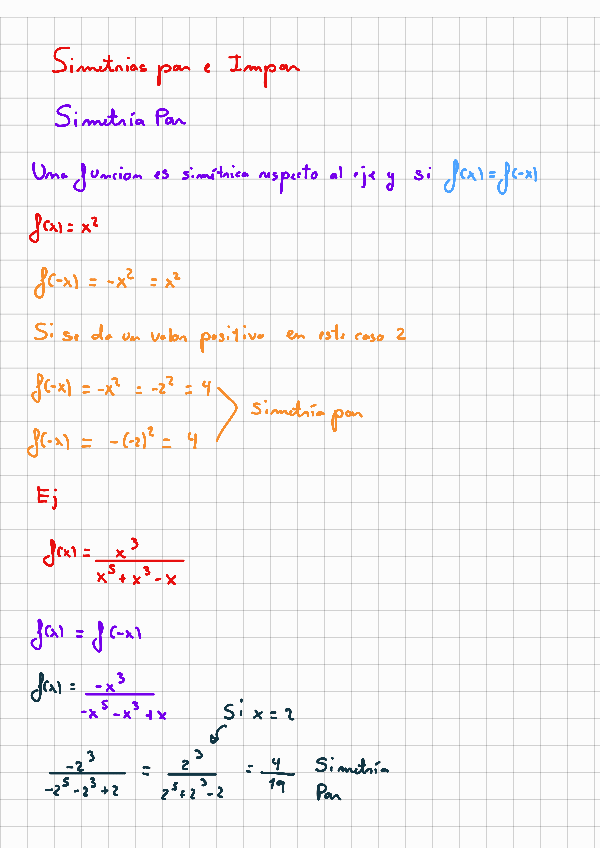 Simetrias par e Impar
Simetría Par
Una funcion es simétrica respecto al eje y si f(x) = f(-x)
f(x) = x²
f(-x) = -x² = x²
Si se da un valor positivo en este caso 2
f(-x) = -x² = -2² = 4
f(-x) = -(-2)² = 4
Simetría par
Ej
f(x) = x³ / (x⁵ + x³ - x)
f(x) = f(-x)
f(x) = -x³ / (-x⁵ - x³ + x)
Si x = 2
-2³ / (-2⁵ - 2³ + 2) = 2³ / (2⁵ + 2³ - 2) = 4/19 Simetría
Par